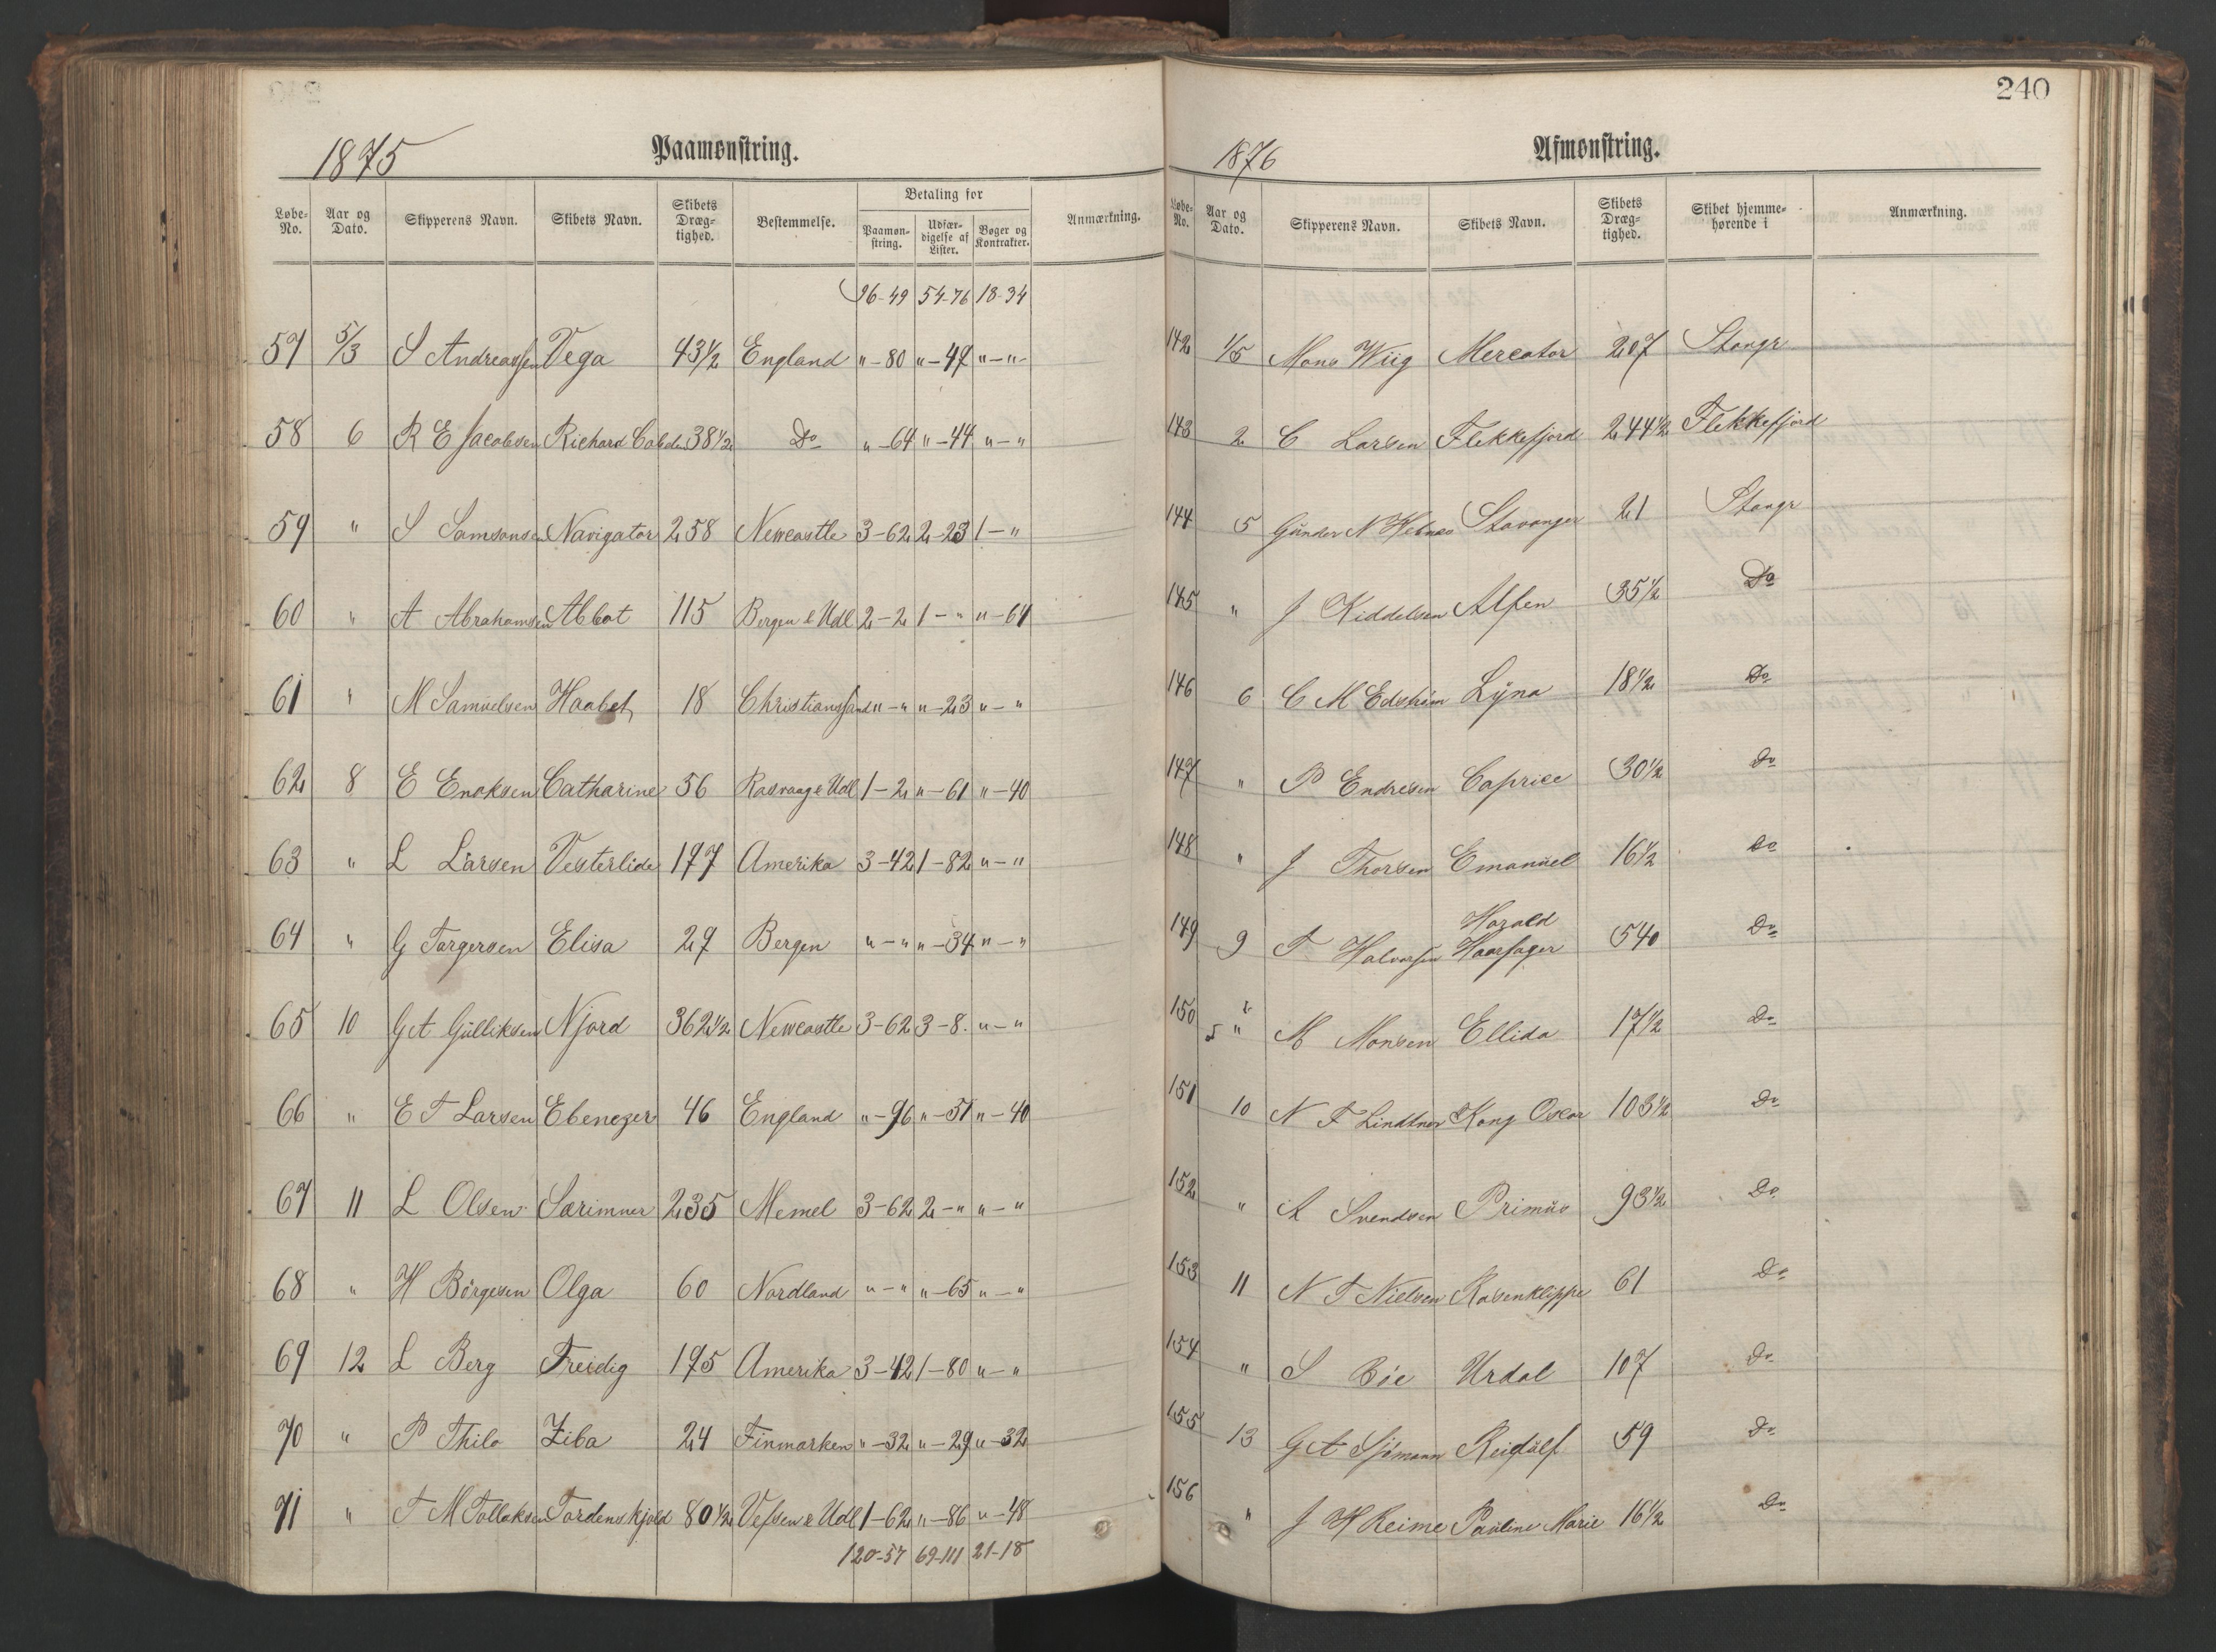 240
1875 Paamønstring.
Løbe-No. Aar og Dato. Skipperens Navn. Skibets Navn. Skibets Dræg-tighed. Bestemmelse. Betaling for Paamøn-string. Udfær-digelse af Lister. Bøger og Kontrakter. Anmærkning.
96-49 54-76 18-34
57 5/3 S Andreassen Vega 43 1/2 England " - 80 " - 47 " - "
58 6 R E Jacobsen Richard Cobden 38 1/2 Do " - 64 " - 44 " - "
59 " S Samsonsen Navigator 258 Newcastle 3 - 62 2 - 23 1 - "
60 " A Abrahamsen Abbot 115 Bergen & Udl 2 - 2 1 - " " - 64
61 " M Samuelsen Haabet 18 Christianssand " - " " - 23 " - "
62 8 E Enoksen Catharine 56 Rasvaag & Udl 1 - 2 " - 61 " - 40
63 " L Larsen Vesterlide 177 Amerika 3 - 42 1 - 82 " - "
64 " G Torgersen Elisa 27 Bergen " - " " - 34 " - "
65 10 G A Gulliksen Njord 362 1/2 Newcastle 3 - 62 3 - 8 " - "
66 " E T Larsen Ebenezer 46 England " - 96 " - 51 " - 40
67 11 L Olsen Særimner 235 Memel 3 - 62 2 - " " - "
68 " H Börgesen Olga 60 Nordland " - " " - 65 " - "
69 12 L Berg Freidig 175 Amerika 3 - 42 1 - 80 " - "
70 " P Thilo Ziba 24 Finmarken " - 32 " - 29 " - 32
71 " T M Tollaksen Tordenskjold 80 1/2 Vefsen & Udl 1 - 62 " - 86 " - 48
120-57 69-111 21-18
1876 Afmønstring.
Løbe-No. Aar og Dato. Skipperens Navn. Skibets Navn. Skibets Dræg-tighed. Skibet hjemme-hørende i Anmærkning.
142 1/5 Mons Wiig Mercator 207 Stangr
143 2 C Larsen Flekkefjord 244 1/2 Flekkefjord
144 5 Gunder N Hetnes Stavanger 21 Stangr
145 " J Kiddelsen Alfen 35 1/2 Do
146 6 C M Edström Lyna 18 1/2 Do
147 " P Endresen Caprice 30 1/2 Do
148 " J Thorsen Emanuel 16 1/2 Do
149 9 T Halvorsen Harald Haarfager 540 Do
150 " M Monsen Ellida 17 1/2 Do
151 10 N F Lindtner Kong Oscar 103 1/2 Do
152 " A Svendsen Primus 93 1/2 Do
153 11 N T Nielsen Rosenklippe 61 Do
154 " S Bøe Urdal 107 Do
155 13 G A Sjömann Reidulf 59 Do
156 " J H Reime Pauline Marie 16 1/2 Do